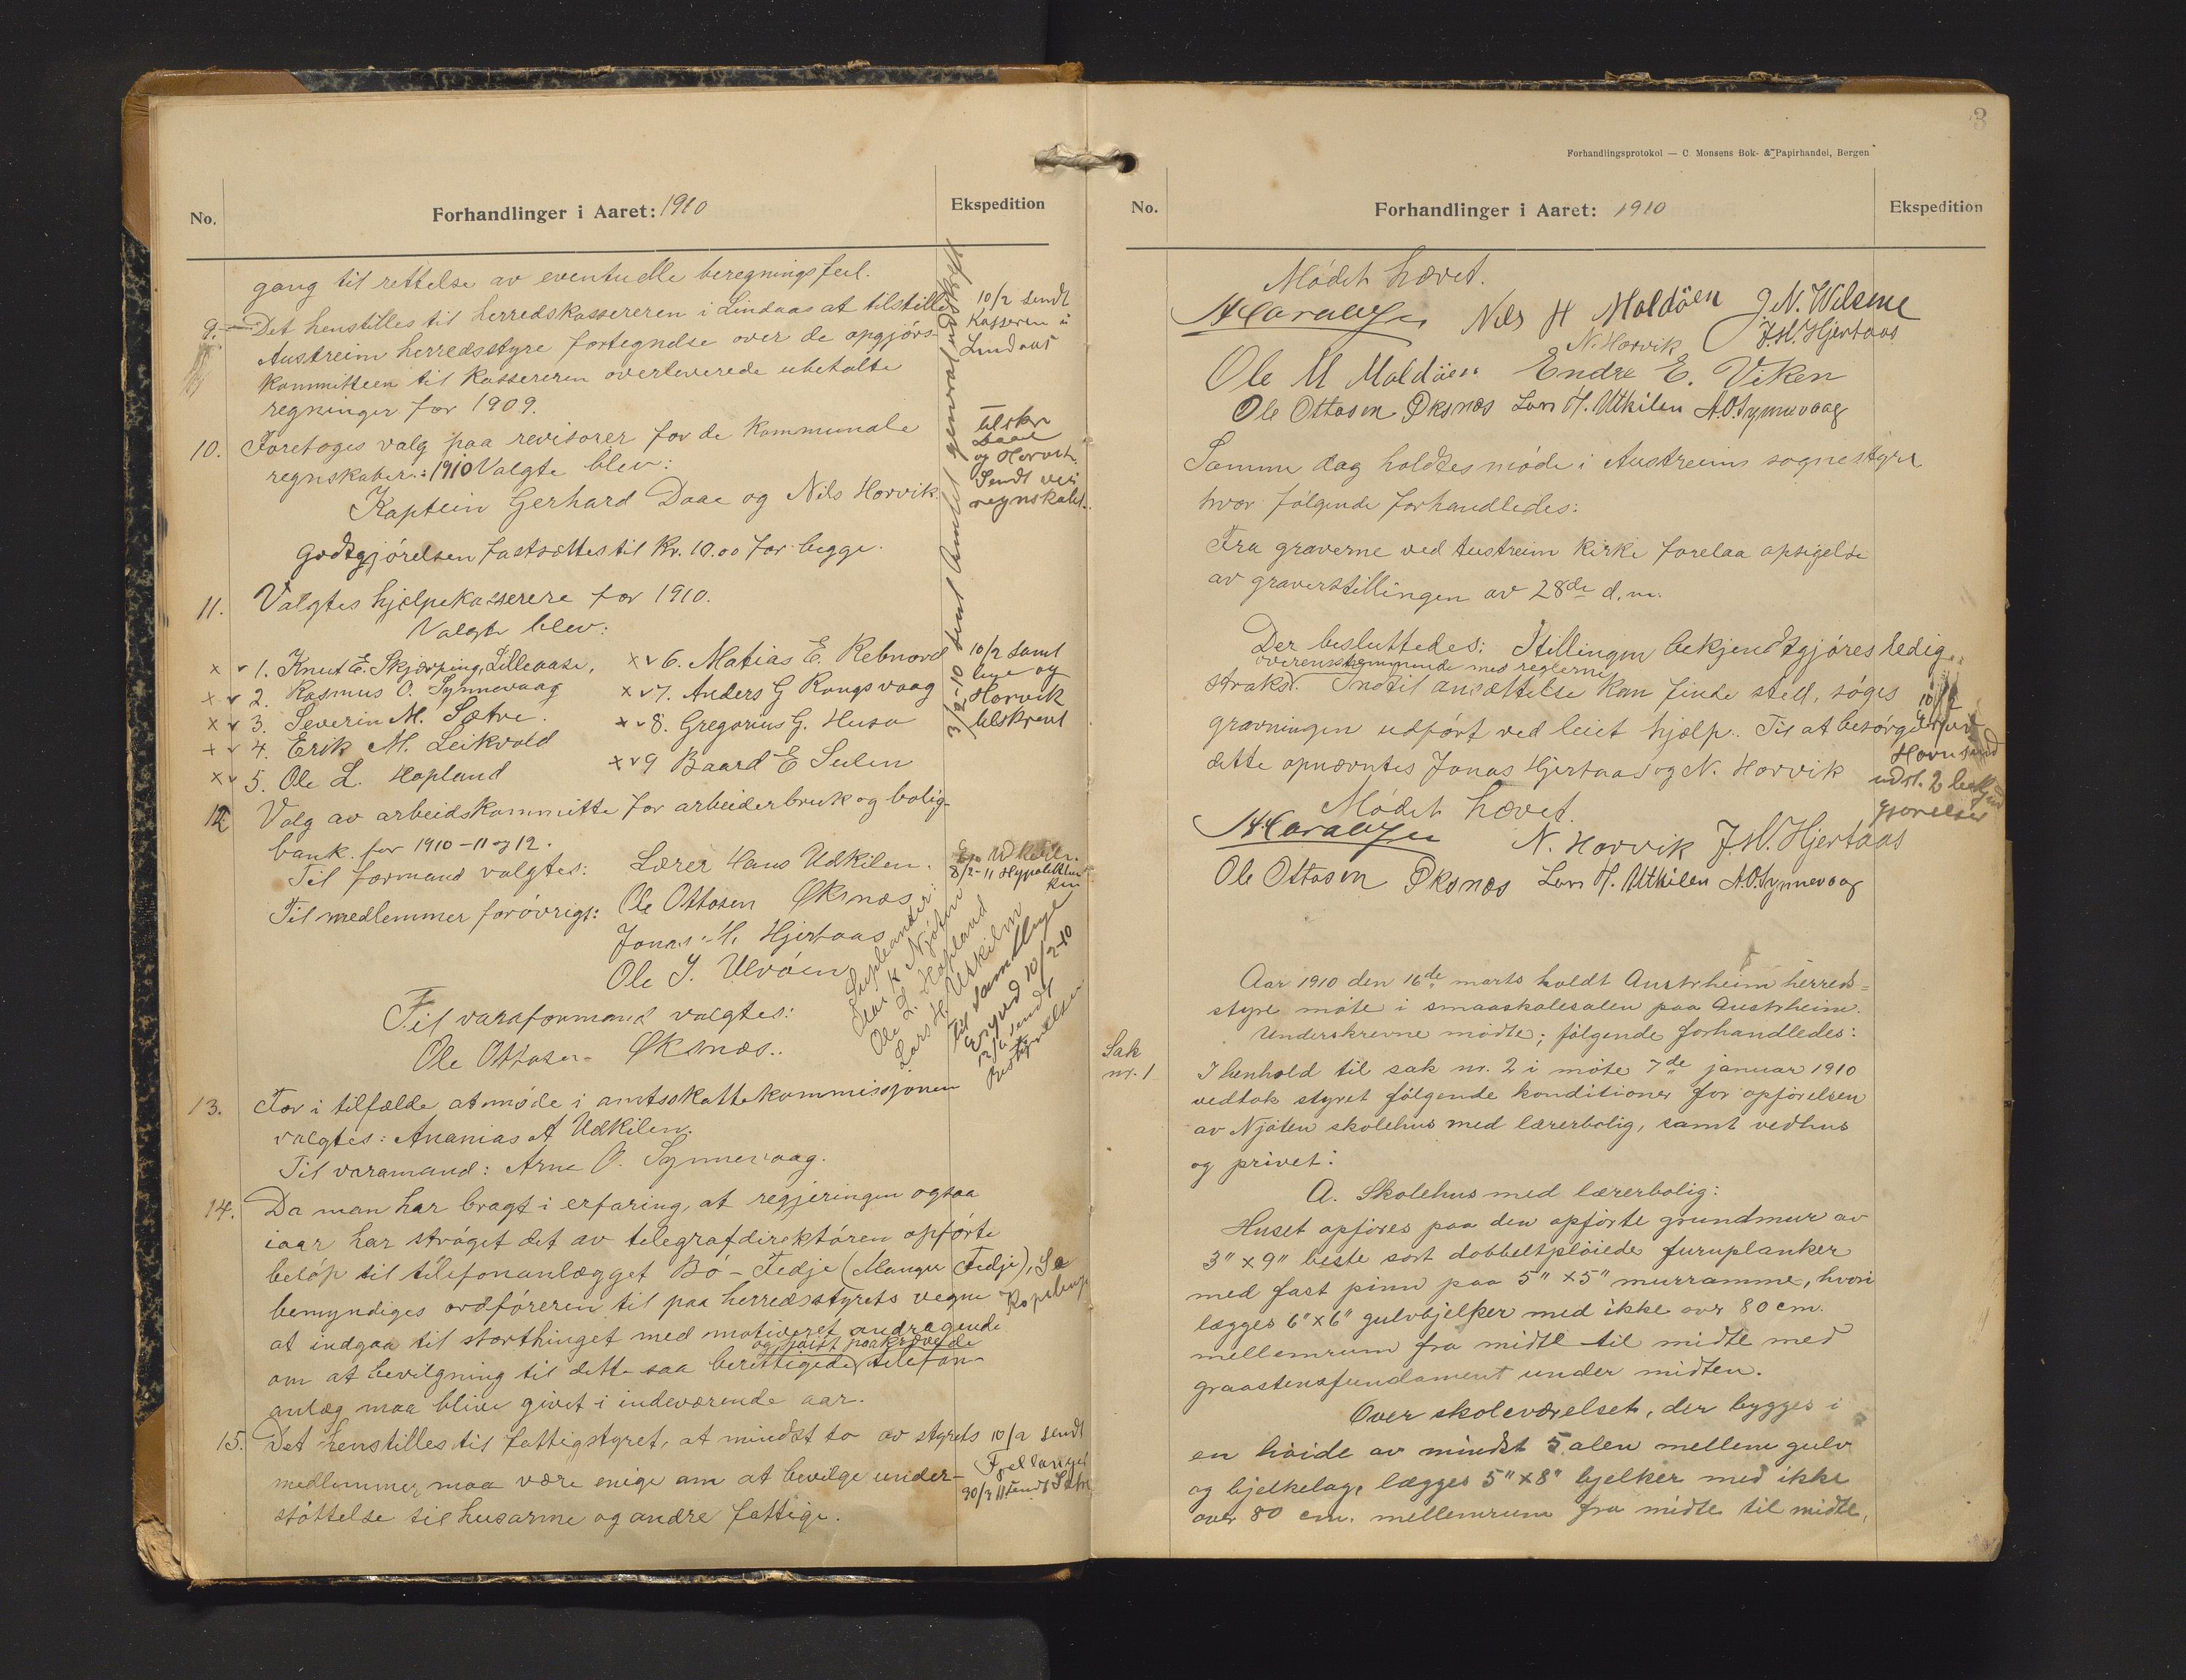 No.
Forhandlinger i Aaret: 1910
Ekspedition
gang til rettelse av eventuelle beregningsfeil.
9. Det henstilles til herredskassereren i Lindaas at tilstille
Austreim herredsstyre fortegnelse over de opgjörs-
kommitteen til kassereren overleverede ubetalte
regninger for 1909.
10/2 sendt
Kasseren i
Lindaas
10. Foretoges valg paa revisorer for de kommunale
regnskaber: 1910 Valgte blev:
Kaptein Gerhard Daae og Nils Horvik
Godtgjörelsen fastsættes til Kr. 10.00 for begge.
tilskr
Daae
og Horvik.
Sendt
regnskabet.
11. Valgtes hjælpekasserere for 1910.
Valgte blev:
x v 1. Knut E. Skjærping, Lilleaase,
x v 2. Rasmus O. Synnevaag
x v 3. Severin M. Sætre.
x v 4. Erik M. Leikvold
x v 5. Ole L. Hopland
x v 6. Matias E. Rebnord
x v 7. Anders G Rongsvaag
x v 8. Gregorius G. Husa
x v 9 Baard E Sulen
10/2 samt
og
Horvik
tilskrevet
12. Valg av arbeidskommitte for arbeiderbruk og bolig-
bank for 1910-11 og 12.
Til formand valgtes: Lærer Hans Udkilen.
Til medlemmer forövrigt: Ole Ottosen Øksnæs
Jonas M. Hjertaas
Ole J. Ulvöen
Suplianter:
K Njöten
Ole L. Hopland
Lars H. Utkilen
Til varaformand valgtes:
Ole Ottosen Øksnæs.
8/2-11 Hypotekban
ken
til samtlige
10/2-10
sendt
13. For i tilfælde at möde i amtsskattekommissjonen
valgtes: Ananias A Udkilen.
Til varamand: Arne O. Synnevaag.
14. Da man har bragt i erfaring, at regjeringen ogsaa
iaar har ströget det av telegrafdirektören opförte
belöp til telefonanlægget Bö - Fedje (Manger Fedje), Se
bemyndiges ordföreren til paa herredsstyrets vegne Kopibog
at indgaa til storthinget med motiveret andragende
og höist paakrævede
om at bevilgning til dette saa berettigede telefon-
anlæg maa blive givet i indeværende aar.
15. Det henstilles til fattigstyret, at mindst to av styrets
medlemmer maa være enige om at bevilge under-
stöttelse til husarme og andre fattige.
10/2 sendt
Fjellanger
3
Forhandlingsprotokol — C. Monsens Bok- & Papirhandel, Bergen
No.
Forhandlinger i Aaret: 1910
Ekspedition
Mödet hævet.
Nils H Moldöen J. N. Wilsme
N. Horvik J. M. Hjertaas
Ole M Moldöen Endre E. Viken
Ole Ottosen Øksnæs Lars H. Utkilen A. O. Synnevaag
Samme dag holdtes möde i Austreims sognestyre
hvor fölgende forhandledes:
Fra graverne ved Austreim Kirke forelaa opsigelse
av graverstillingen av 28de d. m.
Der besluttedes: Stillingen bekjendtgjöres ledig
overensstemmende med reglerne
straks. Indtil ansættelse kan finde sted, söges
gravningen udfört ved leiet hjælp. Til at besörge
dette opnævntes Jonas Hjertaas og N. Horvik
10/2
udst. 2 bekjendt
gjörelser
Mödet hævet.
N. Horvik J. M. Hjertaas
Ole Ottosen Øksnæs Lars H. Utkilen A. O. Synnevaag
Aar 1910 den 16de marts holdt Austrheim herreds=
styre möte i smaaskolesalen paa Austrheim.
Underskrevne mödte; fölgende forhandledes:
Sak
nr. 1
I henhold til sak nr. 2 i möte 7de januar 1910
vedtok styret fölgende konditioner for opförelsen
av Njöten skolehus med lærerbolig, samt vedhus
og privet:
A. Skolehus med lærerbolig:
Huset opföres paa den opförte grundmur av
3" x 9" beste sort dobbeltplöiede furuplanker
med fast pinn paa 5" x 5" murramme, hvori
lægges 6" x 6" gulvbjelker med ikke over 80 cm.
mellemrum fra midte til midte med
graastensfundament under midten.
Over skoleværelset, der bygges i
en höide av mindst 5 alen mellem gulv
og bjelkelag, lægges 5" x 8" bjelker med ikke
over 80 cm. mellemrum fra midte til midte,